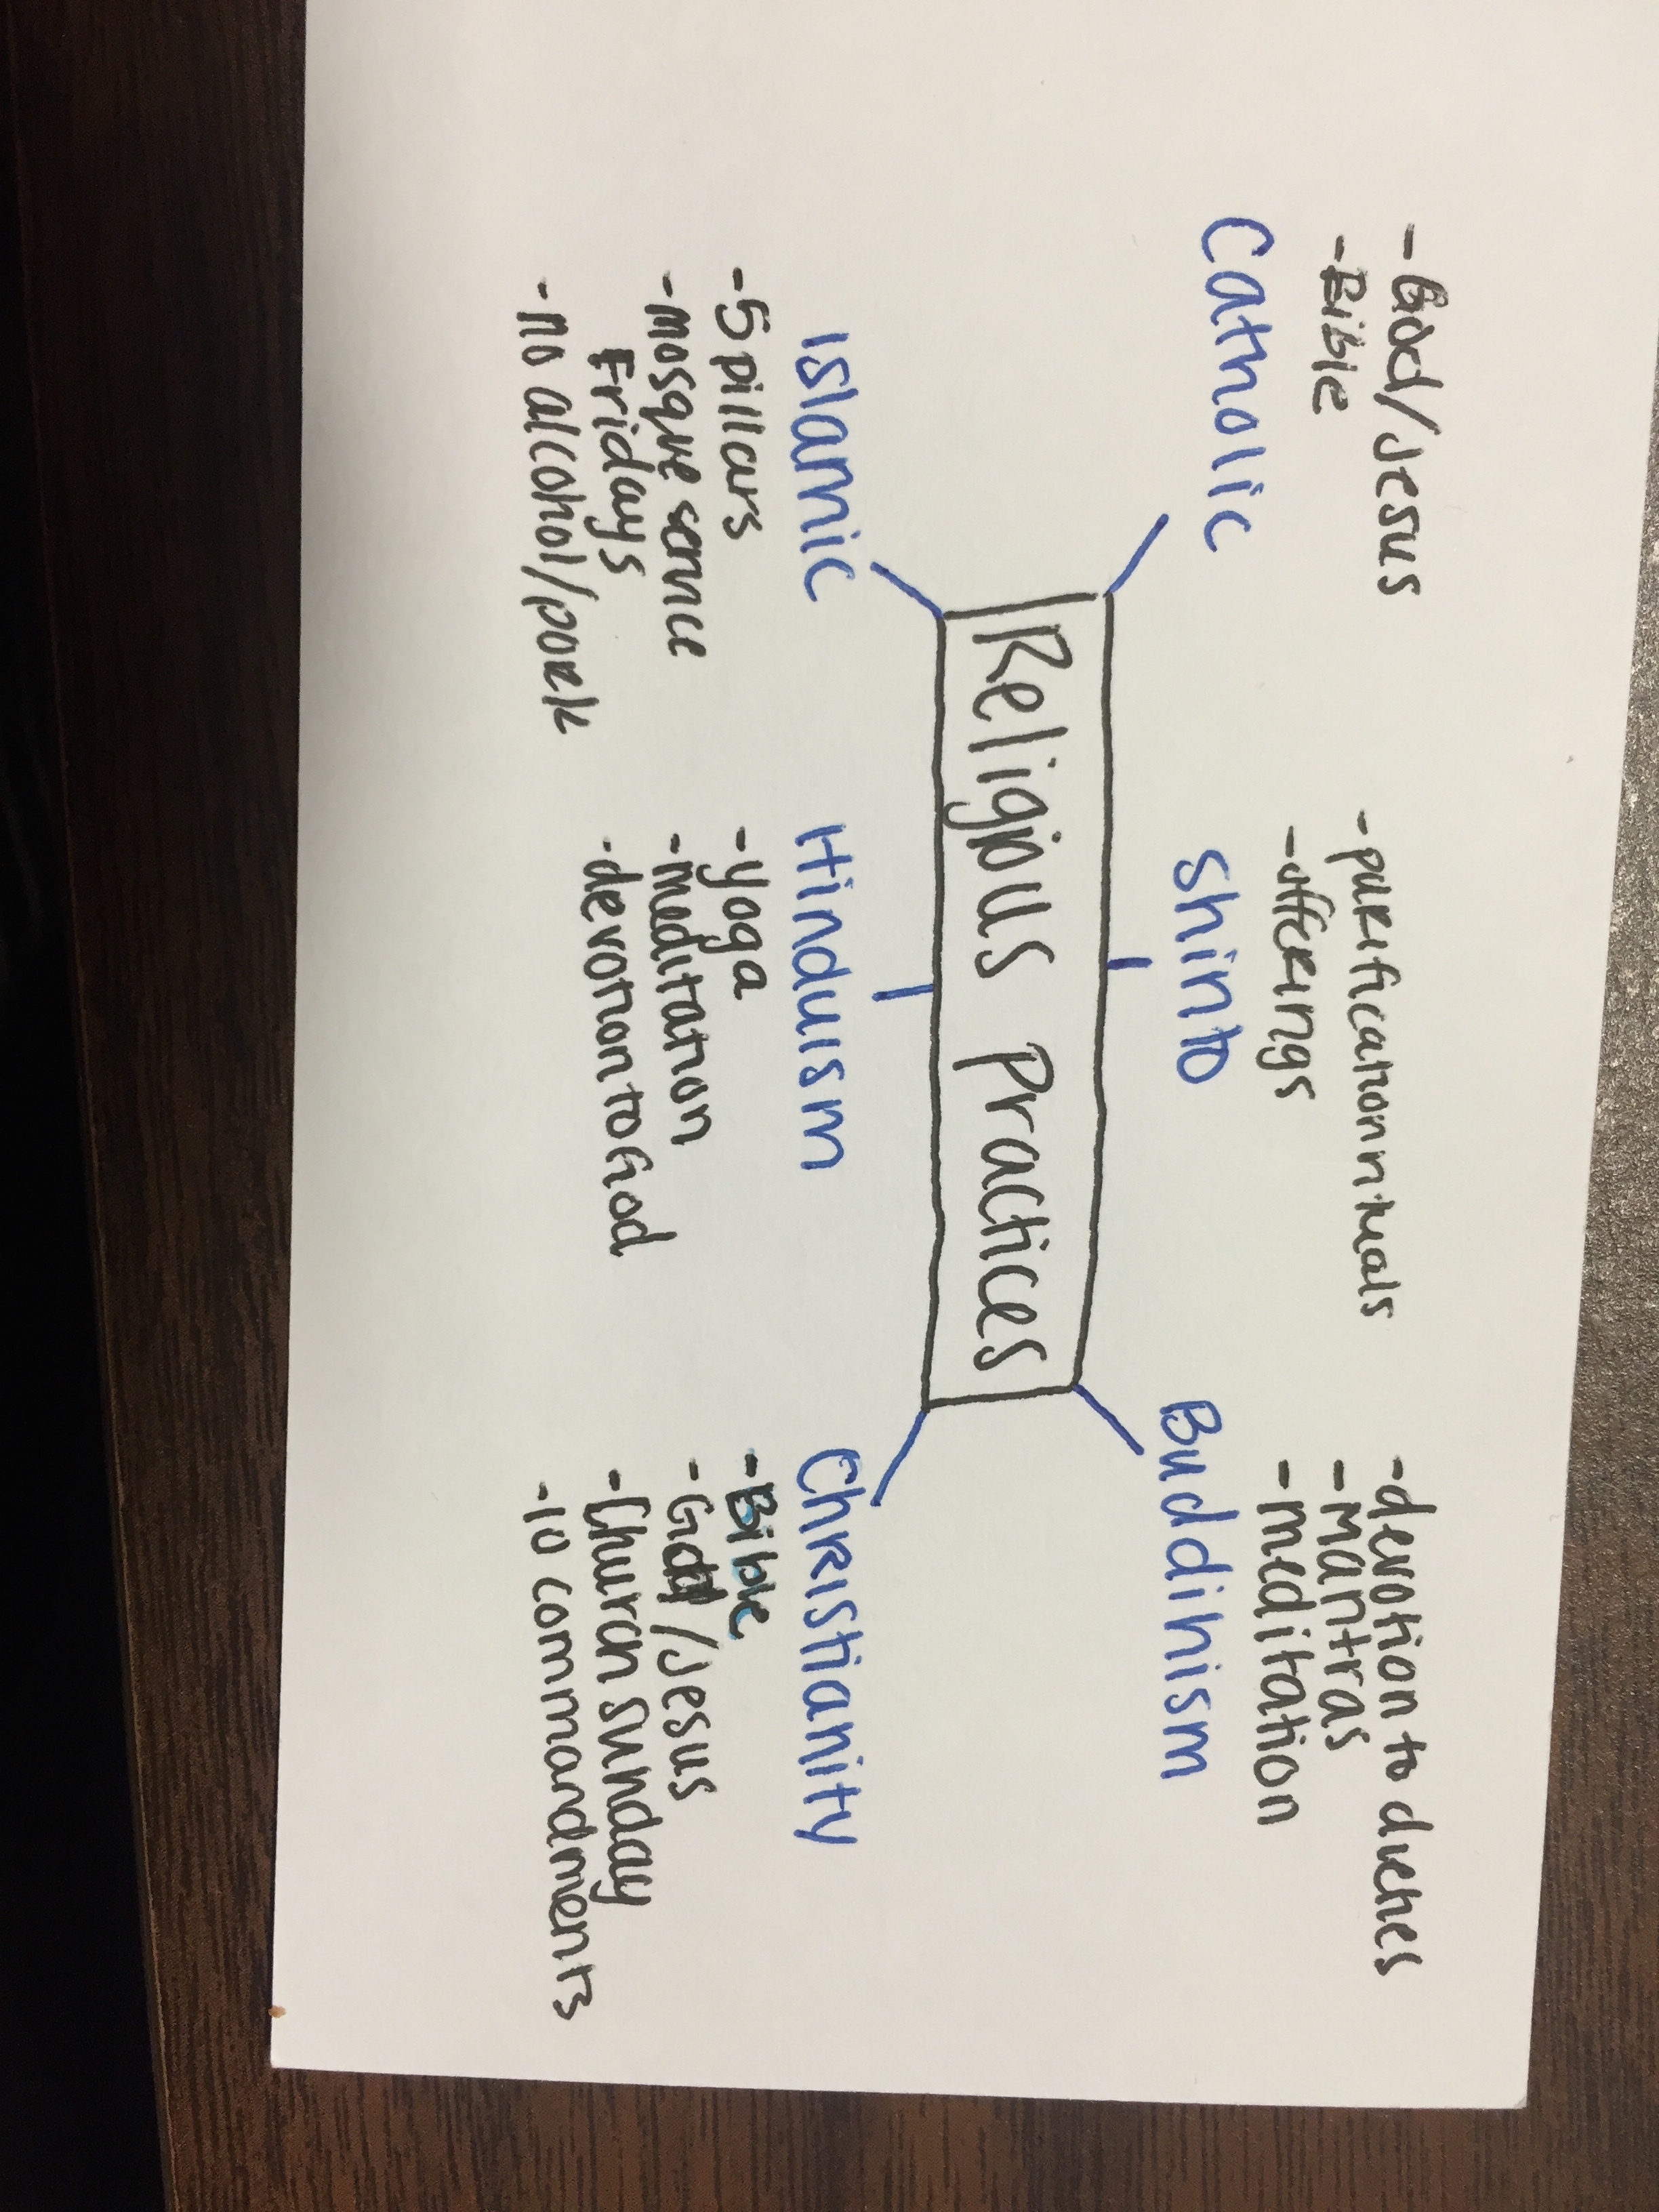 - God/Jesus
- Bible
Catholic
- purification rituals
- offerings
Shinto
- devotion to dieties
- Mantras
- meditation
Buddihism
Religious Practices
Islamic
- 5 pillars
- mosque service
Fridays
- no alcohol/pork
Hinduism
- yoga
- meditation
- devotion to God
Christianity
- Bible
- God/Jesus
- Church Sunday
- 10 commandments